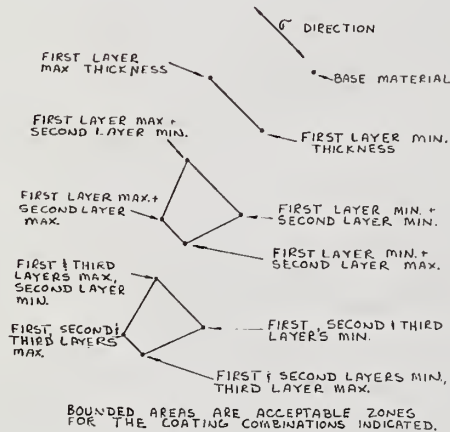 σ DIRECTION
BASE MATERIAL
FIRST LAYER
MAX THICKNESS
FIRST LAYER MIN.
THICKNESS
FIRST LAYER MAX +
SECOND LAYER MIN.
FIRST LAYER MAX.+
SECOND LAYER
MAX.
FIRST LAYER MIN. +
SECOND LAYER MIN.
FIRST LAYER MIN.+
SECOND LAYER MAX.
FIRST & THIRD
LAYERS MAX,
SECOND LAYER
MIN.
FIRST, SECOND &
THIRD LAYERS
MAX.
FIRST, SECOND & THIRD
LAYERS MIN.
FIRST & SECOND LAYERS MIN.,
THIRD LAYER MAX.
BOUNDED AREAS ARE ACCEPTABLE ZONES
FOR THE COATING COMBINATIONS INDICATED.